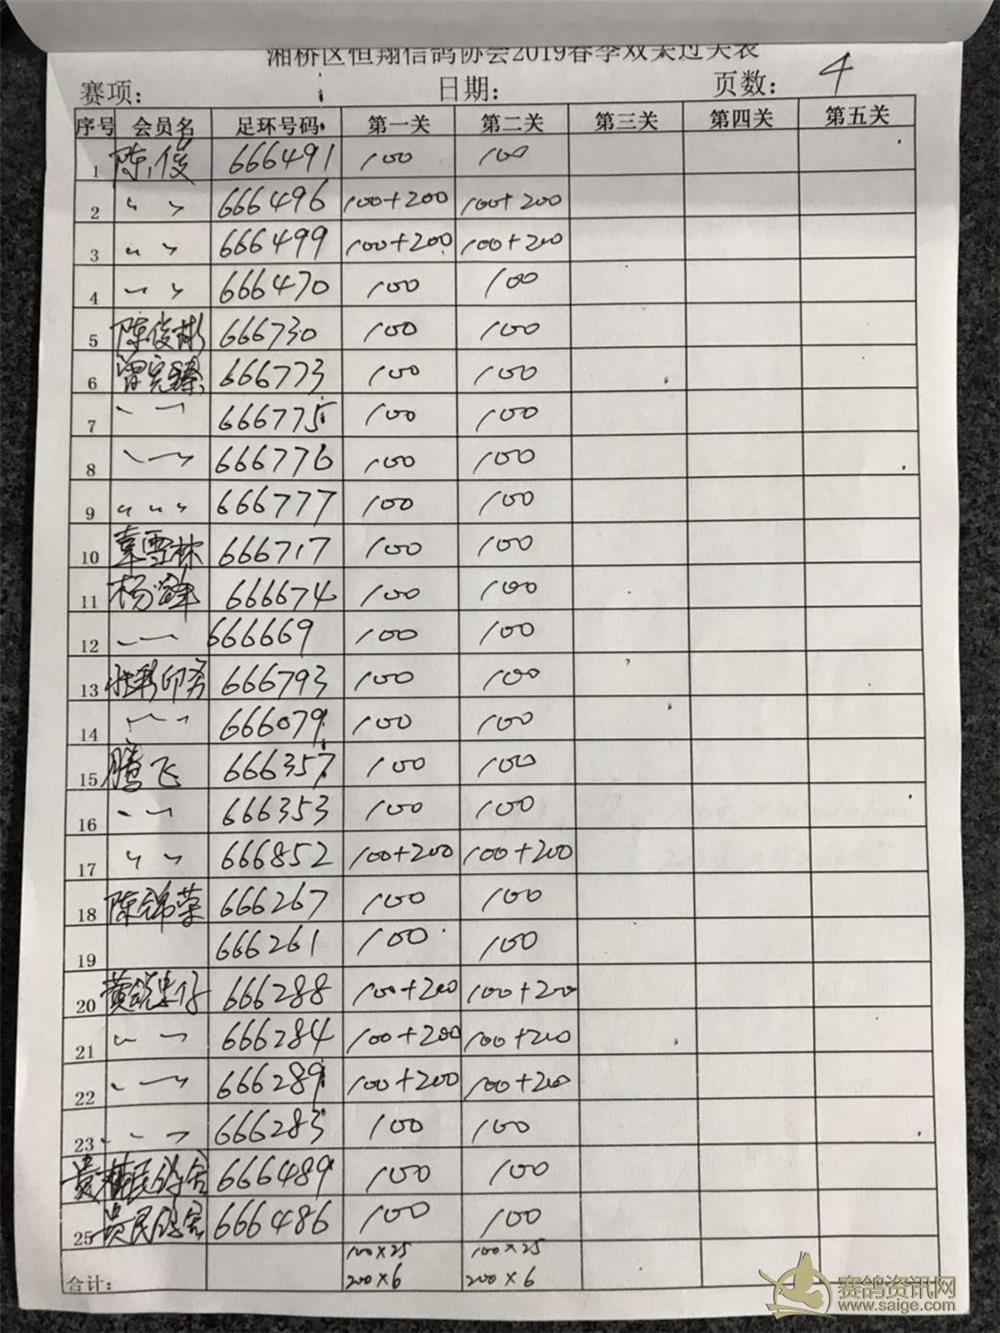 湘桥区恒翔信鸽协会2019春季双关过关表
赛项: 日期: 页数: 4
序号 会员名 足环号码 第一关 第二关 第三关 第四关 第五关
1 陈俊 666491 100 100
2 〃 〃 666496 100+200 100+200
3 〃 〃 666499 100+200 100+200
4 〃 〃 666470 100 100
5 陈俊彬 666730 100 100
6 曾完臻 666773 100 100
7 〃 〃 666775 100 100
8 〃 〃 666776 100 100
9 〃 〃 〃 666777 100 100
10 袁雪林 666717 100 100
11 杨 666674 100 100
12 〃 〃 666669 100 100
13 彩印务 666793 100 100
14 〃 〃 666079 100 100
15 腾飞 666357 100 100
16 〃 〃 666353 100 100
17 〃 〃 666852 100+200 100+200
18 陈锦荣 666267 100 100
19 666261 100 100
20 黄 666288 100+200 100+200
21 〃 〃 666284 100+200 100+200
22 〃 〃 666289 100+200 100+200
23 〃 〃 〃 666283 100 100
民鸽舍 666489 100 100
25 吴民鸽舍 666486 100 100
100×25 100×25
合计: 200×6 200×6
赛鸽资讯网
www.saige.com